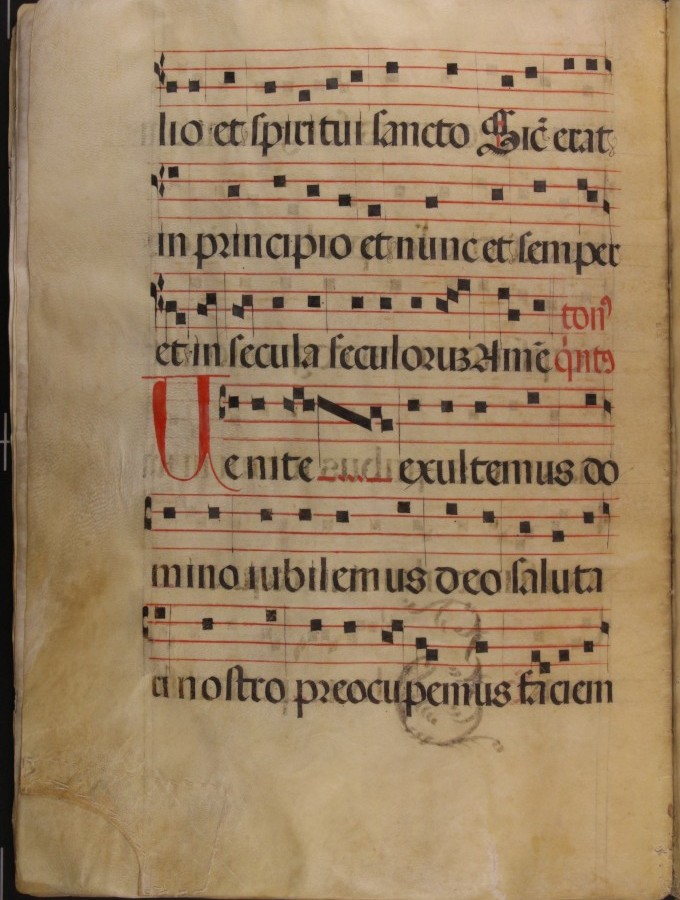 lio et spiritui sancto Sic̄ erat
in principio et nunc et semper
et in secula seculoruꝫ Amē
tonꝰ
q̇ntꝰ
Uenite exultemus do
mino iubilemus deo saluta
ri nostro preocupemus faciem